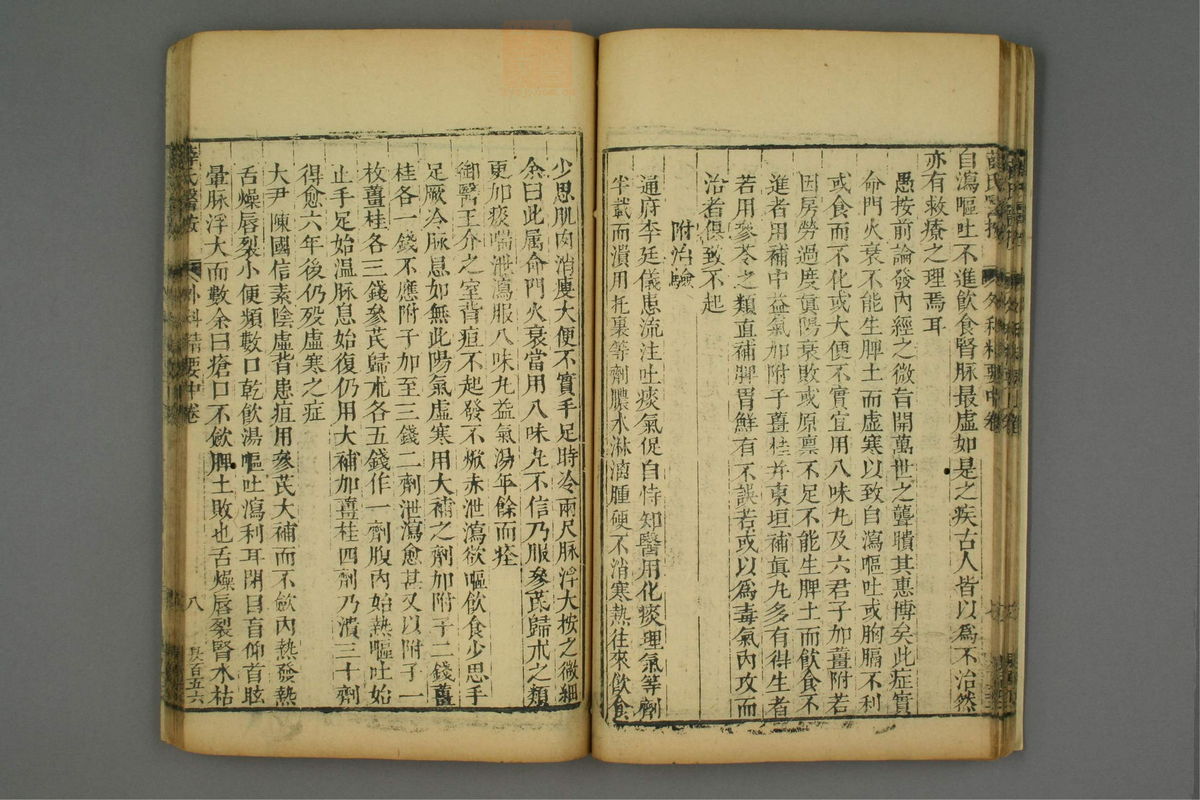 自瀉嘔吐不進飲食腎脉最虛如是之疾古人皆以爲不治然
亦有救療之理焉耳
愚按前論發內經之微旨開萬世之聾聵其惠博矣此症實
命門火衰不能生脾土而虛寒以致自瀉嘔吐或胸膈不利
或食而不化或大便不實宜用八味丸及六君子加薑附若
因房勞過度眞陽衰敗或原禀不足不能生脾土而飲食不
進者用補中益氣加附子薑桂并東垣補眞丸多有得生者
若用參苓之類直補脾胃鮮有不誤若或以爲毒氣內攻而
治者俱致不起
附治驗
通府李廷儀患流注吐痰氣促自恃知醫用化痰理氣等劑
半載而潰用托裏等劑膿水淋漓腫硬不消寒熱往來飲食
少思肌肉消瘦大便不實手足時冷兩尺脉浮大按之微細
余曰此属命門火衰當用八味丸不信乃服參芪歸朮之類
更加痰喘泄瀉服八味丸益氣湯年餘而痊
御醫王介之室背疽不起發不焮赤泄瀉欲嘔飲食少思手
足厥冷脉息如無此陽氣虛寒用大補之劑加附子二錢薑
桂各一錢不應附子加至三錢二劑泄瀉愈甚又以附子一
枚薑桂各三錢參芪歸朮各五錢作一劑腹內始熱嘔吐始
止手足始温脉息始復仍用大補加薑桂四劑乃潰三十劑
得愈六年後仍歿虛寒之症
大尹陳國信素陰虛背患疽用參芪大補而不歛內熱發熱
舌燥唇裂小便頻數口乾飲湯嘔吐瀉利耳閉目盲仰首眩
暈脉浮大而數余曰瘡口不歛脾土敗也舌燥唇裂腎水枯
薛氏醫按
外科精要中卷
八